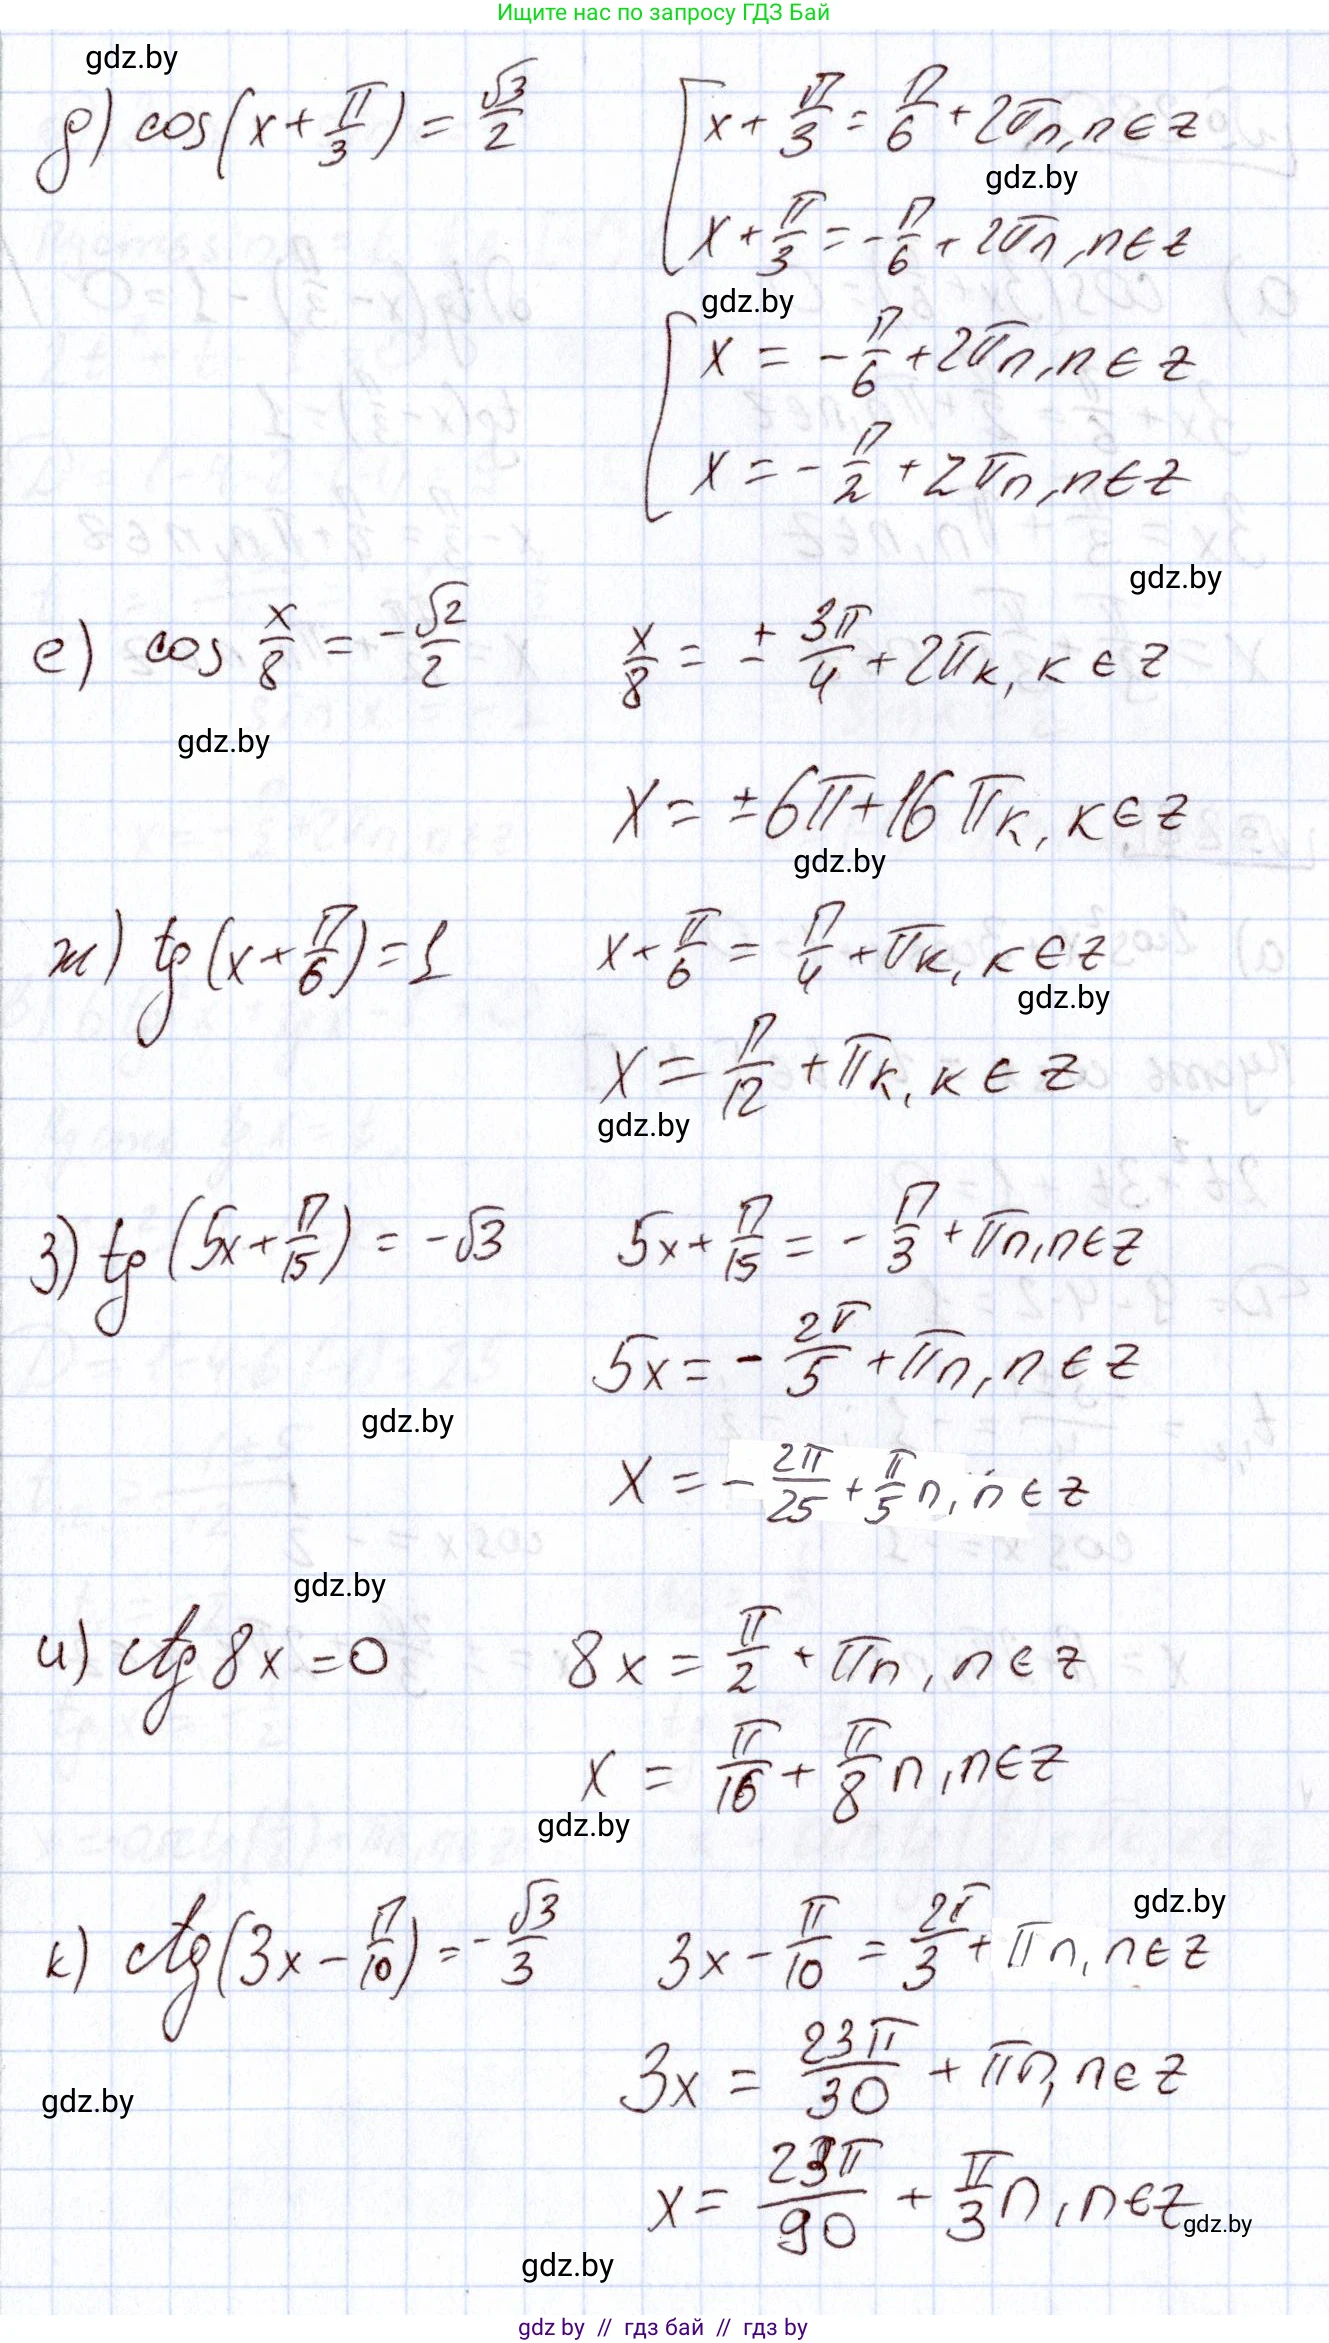 Ищите нас по запросу ГДЗ Бай
gdz.by
д) cos(x + π/3) = √3/2   [ x + π/3 = π/6 + 2πn, n ∈ z
gdz.by
x + π/3 = -π/6 + 2πn, n ∈ z
gdz.by
[ x = -π/6 + 2πn, n ∈ z
x = -π/2 + 2πn, n ∈ z
gdz.by
е) cos x/8 = -√2/2   x/8 = ± 3π/4 + 2πк, к ∈ z
gdz.by
x = ±6π + 16πк, к ∈ z
gdz.by
ж) tg(x + π/6) = 1   x + π/6 = π/4 + πк, к ∈ z
gdz.by
x = π/12 + πк, к ∈ z
gdz.by
з) tg(5x + π/15) = -√3   5x + π/15 = -π/3 + πn, n ∈ z
5x = -2π/5 + πn, n ∈ z
gdz.by
x = -2π/25 + π/5 n, n ∈ z
gdz.by
и) ctg 8x = 0   8x = π/2 + πn, n ∈ z
x = π/16 + π/8 n, n ∈ z
gdz.by
gdz.by
к) ctg(3x - π/10) = -√3/3   3x - π/10 = 2π/3 + πn, n ∈ z
3x = 23π/30 + πn, n ∈ z
gdz.by
x = 23π/90 + π/3 n, n ∈ z
gdz.by
gdz.by
gdz by // гдз бай // gdz by